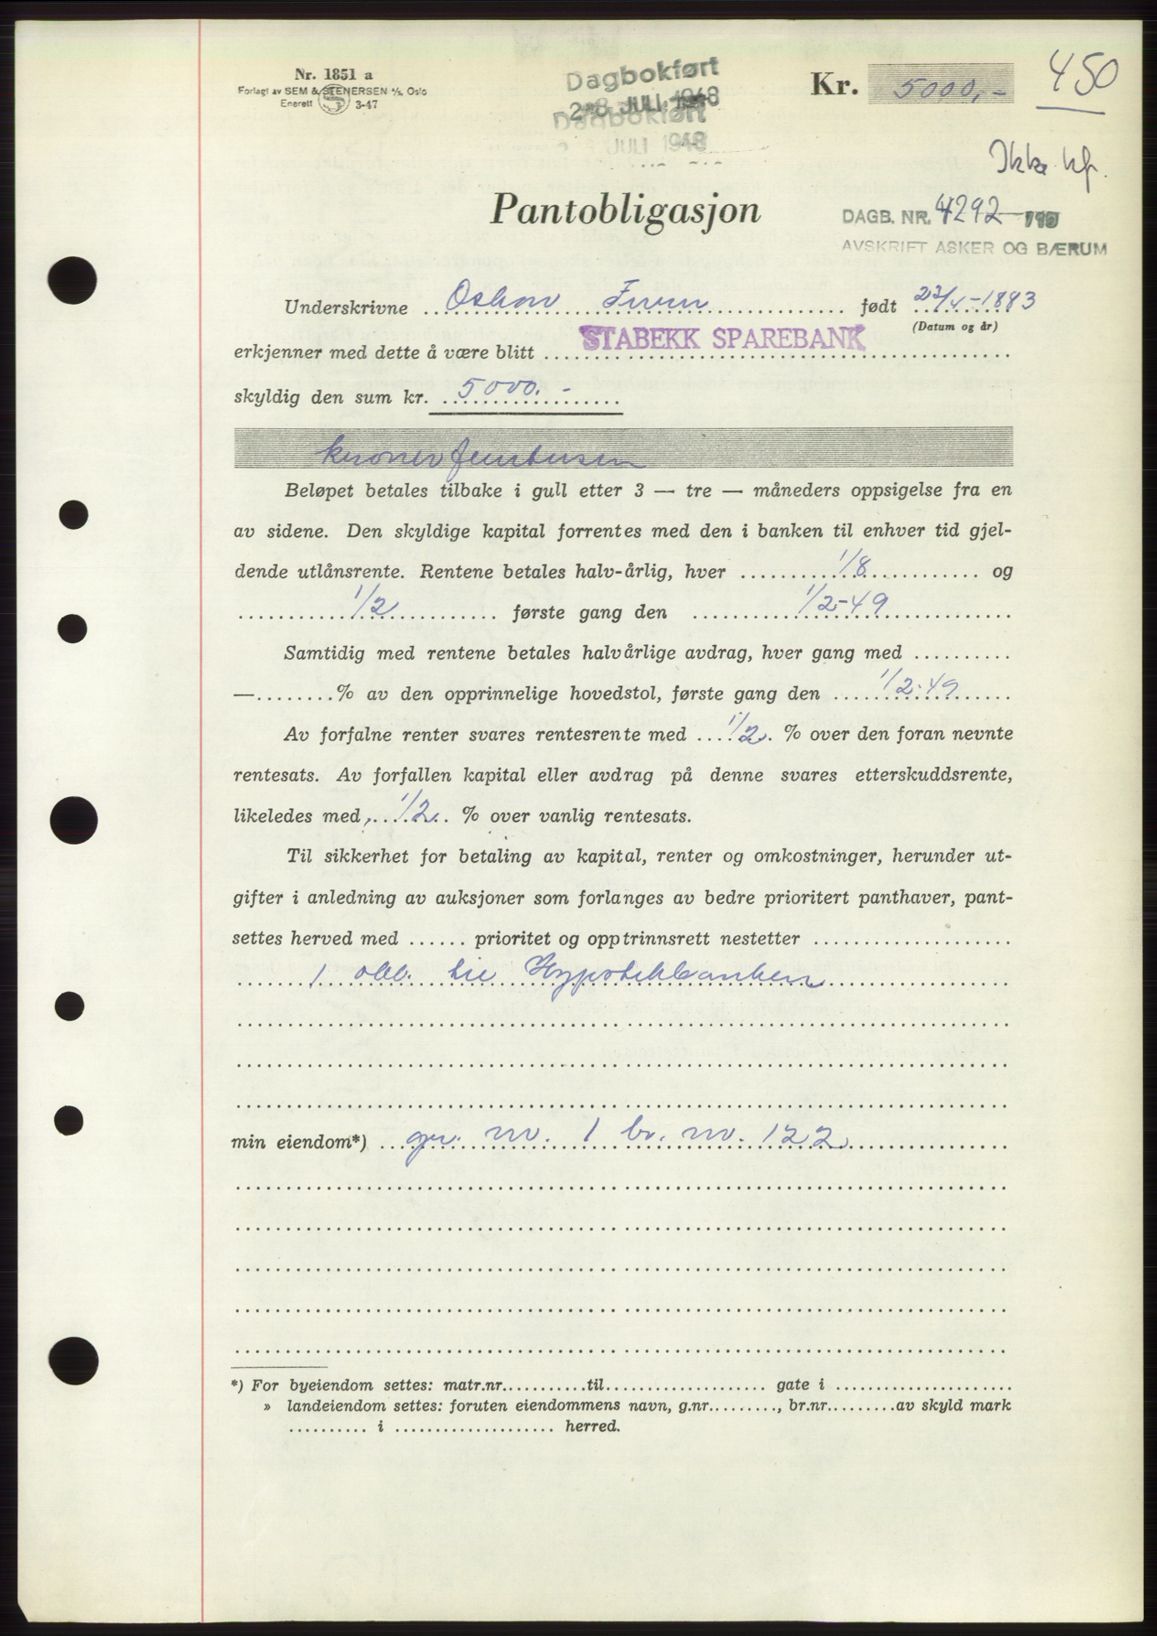 Nr. 1851 a
Forlagt av SEM & STENERSEN A/S, Oslo
Enerett 3-47
Dagbokført
28 JULI 1948
Dagbokført
JULI 1948
Kr. 5000,-
450
Ikke kf.
Pantobligasjon
DAGB. NR. 4292
AVSKRIFT ASKER OG BÆRUM
Underskrivne Oskar født 23/4-1883
(Datum og år)
erkjenner med dette å være blitt STABEKK SPAREBANK
skyldig den sum kr. 5000.-
kroner femtusen
Beløpet betales tilbake i gull etter 3 — tre — måneders oppsigelse fra en
av sidene. Den skyldige kapital forrentes med den i banken til enhver tid gjel-
dende utlånsrente. Rentene betales halv-årlig, hver 1/8 og
1/2 første gang den 1/2-49
Samtidig med rentene betales halvårlige avdrag, hver gang med ..........
—........% av den opprinnelige hovedstol, første gang den 1/2-49
Av forfalne renter svares rentesrente med 1/2 % over den foran nevnte
rentesats. Av forfallen kapital eller avdrag på denne svares etterskuddsrente,
likeledes med 1/2 % over vanlig rentesats.
Til sikkerhet for betaling av kapital, renter og omkostninger, herunder ut-
gifter i anledning av auksjoner som forlanges av bedre prioritert panthaver, pant-
settes herved med ...... prioritet og opptrinnsrett nestetter ....................
1 obl. til Hypotekbanken
min eiendom*) gr. nr. 1 br. nr. 122
*) For byeiendom settes: matr.nr...........til.................... gate i ......................
» landeiendom settes: foruten eiendommens navn, g.nr........., br.nr.........av skyld mark
.......... i .................... herred.